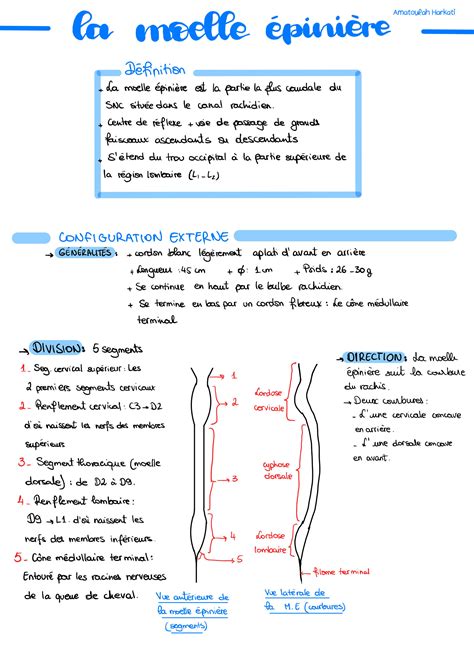 Amatoullah Harkati
la moelle épinière
Définition
. La moelle épinière est la partie la plus caudale du
SNC située dans le canal rachidien.
. Centre de réflexe + voie de passage de grands
faisceaux ascendants ou descendants
. S'étend du trou occipital à la partie supérieure de
la région lombaire (L1_L2)
CONFIGURATION EXTERNE
→ GÉNÉRALITÉS : + cordon blanc légèrement aplati d'avant en arrière
+ Longueur : 45 cm + ϕ : 1 cm + Poids : 26_30g
+ Se continue en haut par le bulbe rachidien.
+ Se termine en bas par un cordon fibreux : Le cône médullaire
terminal
→ DIVISION : 5 segments
1_ Seg cervical supérieur : Les
2 premiers segments cervicaux
2_ Renflement cervical : C3→D2
d'où naissent les nerfs des membres
supérieurs
3_ Segment thoracique (moelle
dorsale) : de D2 à D9.
4_ Renflement lombaire :
D9 → L1. d'où naissent les
nerfs des membres inférieurs.
5_ Cône médullaire terminal :
Entouré par les racines nerveuses
de la queue de cheval.
1
2
3
4
5
Vue antérieure de
la moelle épinière
(segments)
Lordose
cervicale
cyphose
dorsale
Lordose
lombaire
filome terminal
Vue latérale de
la M.E (courbures)
→ DIRECTION : La moelle
épinière suit la courbure
du rachis.
→ Deux courbures :
_ L'une cervicale concave
en arrière.
_ L'une dorsale concave
en avant.